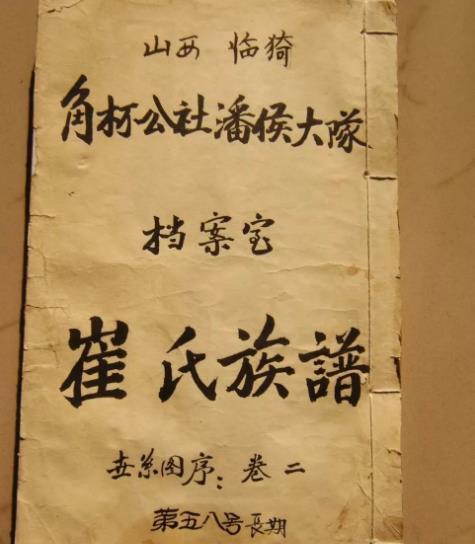 山西 临猗
角杯公社潘侯大隊
档案室
崔氏族譜
世系图序：卷二
第五八号長期